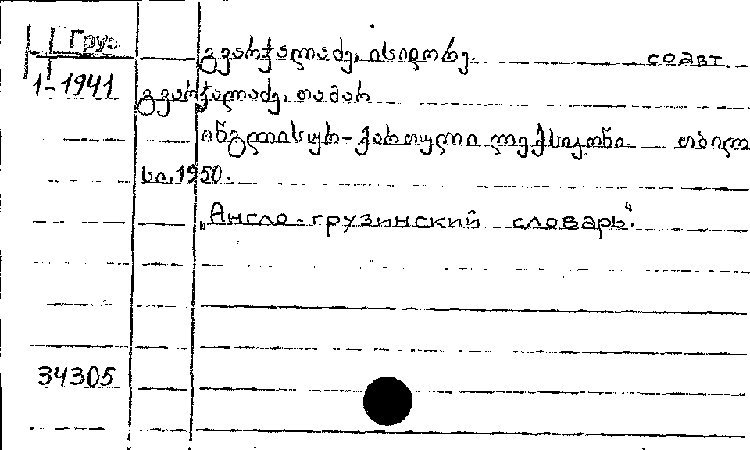 Груз
გვარჯალაძე, ისიდორე. соавт
1-1941
გვარჯალაძე, თამარ
ინგლისურ-ქართული ლექსიკონი თბილი
სი, 1950.
„Англо-грузинский словарь“.
34305